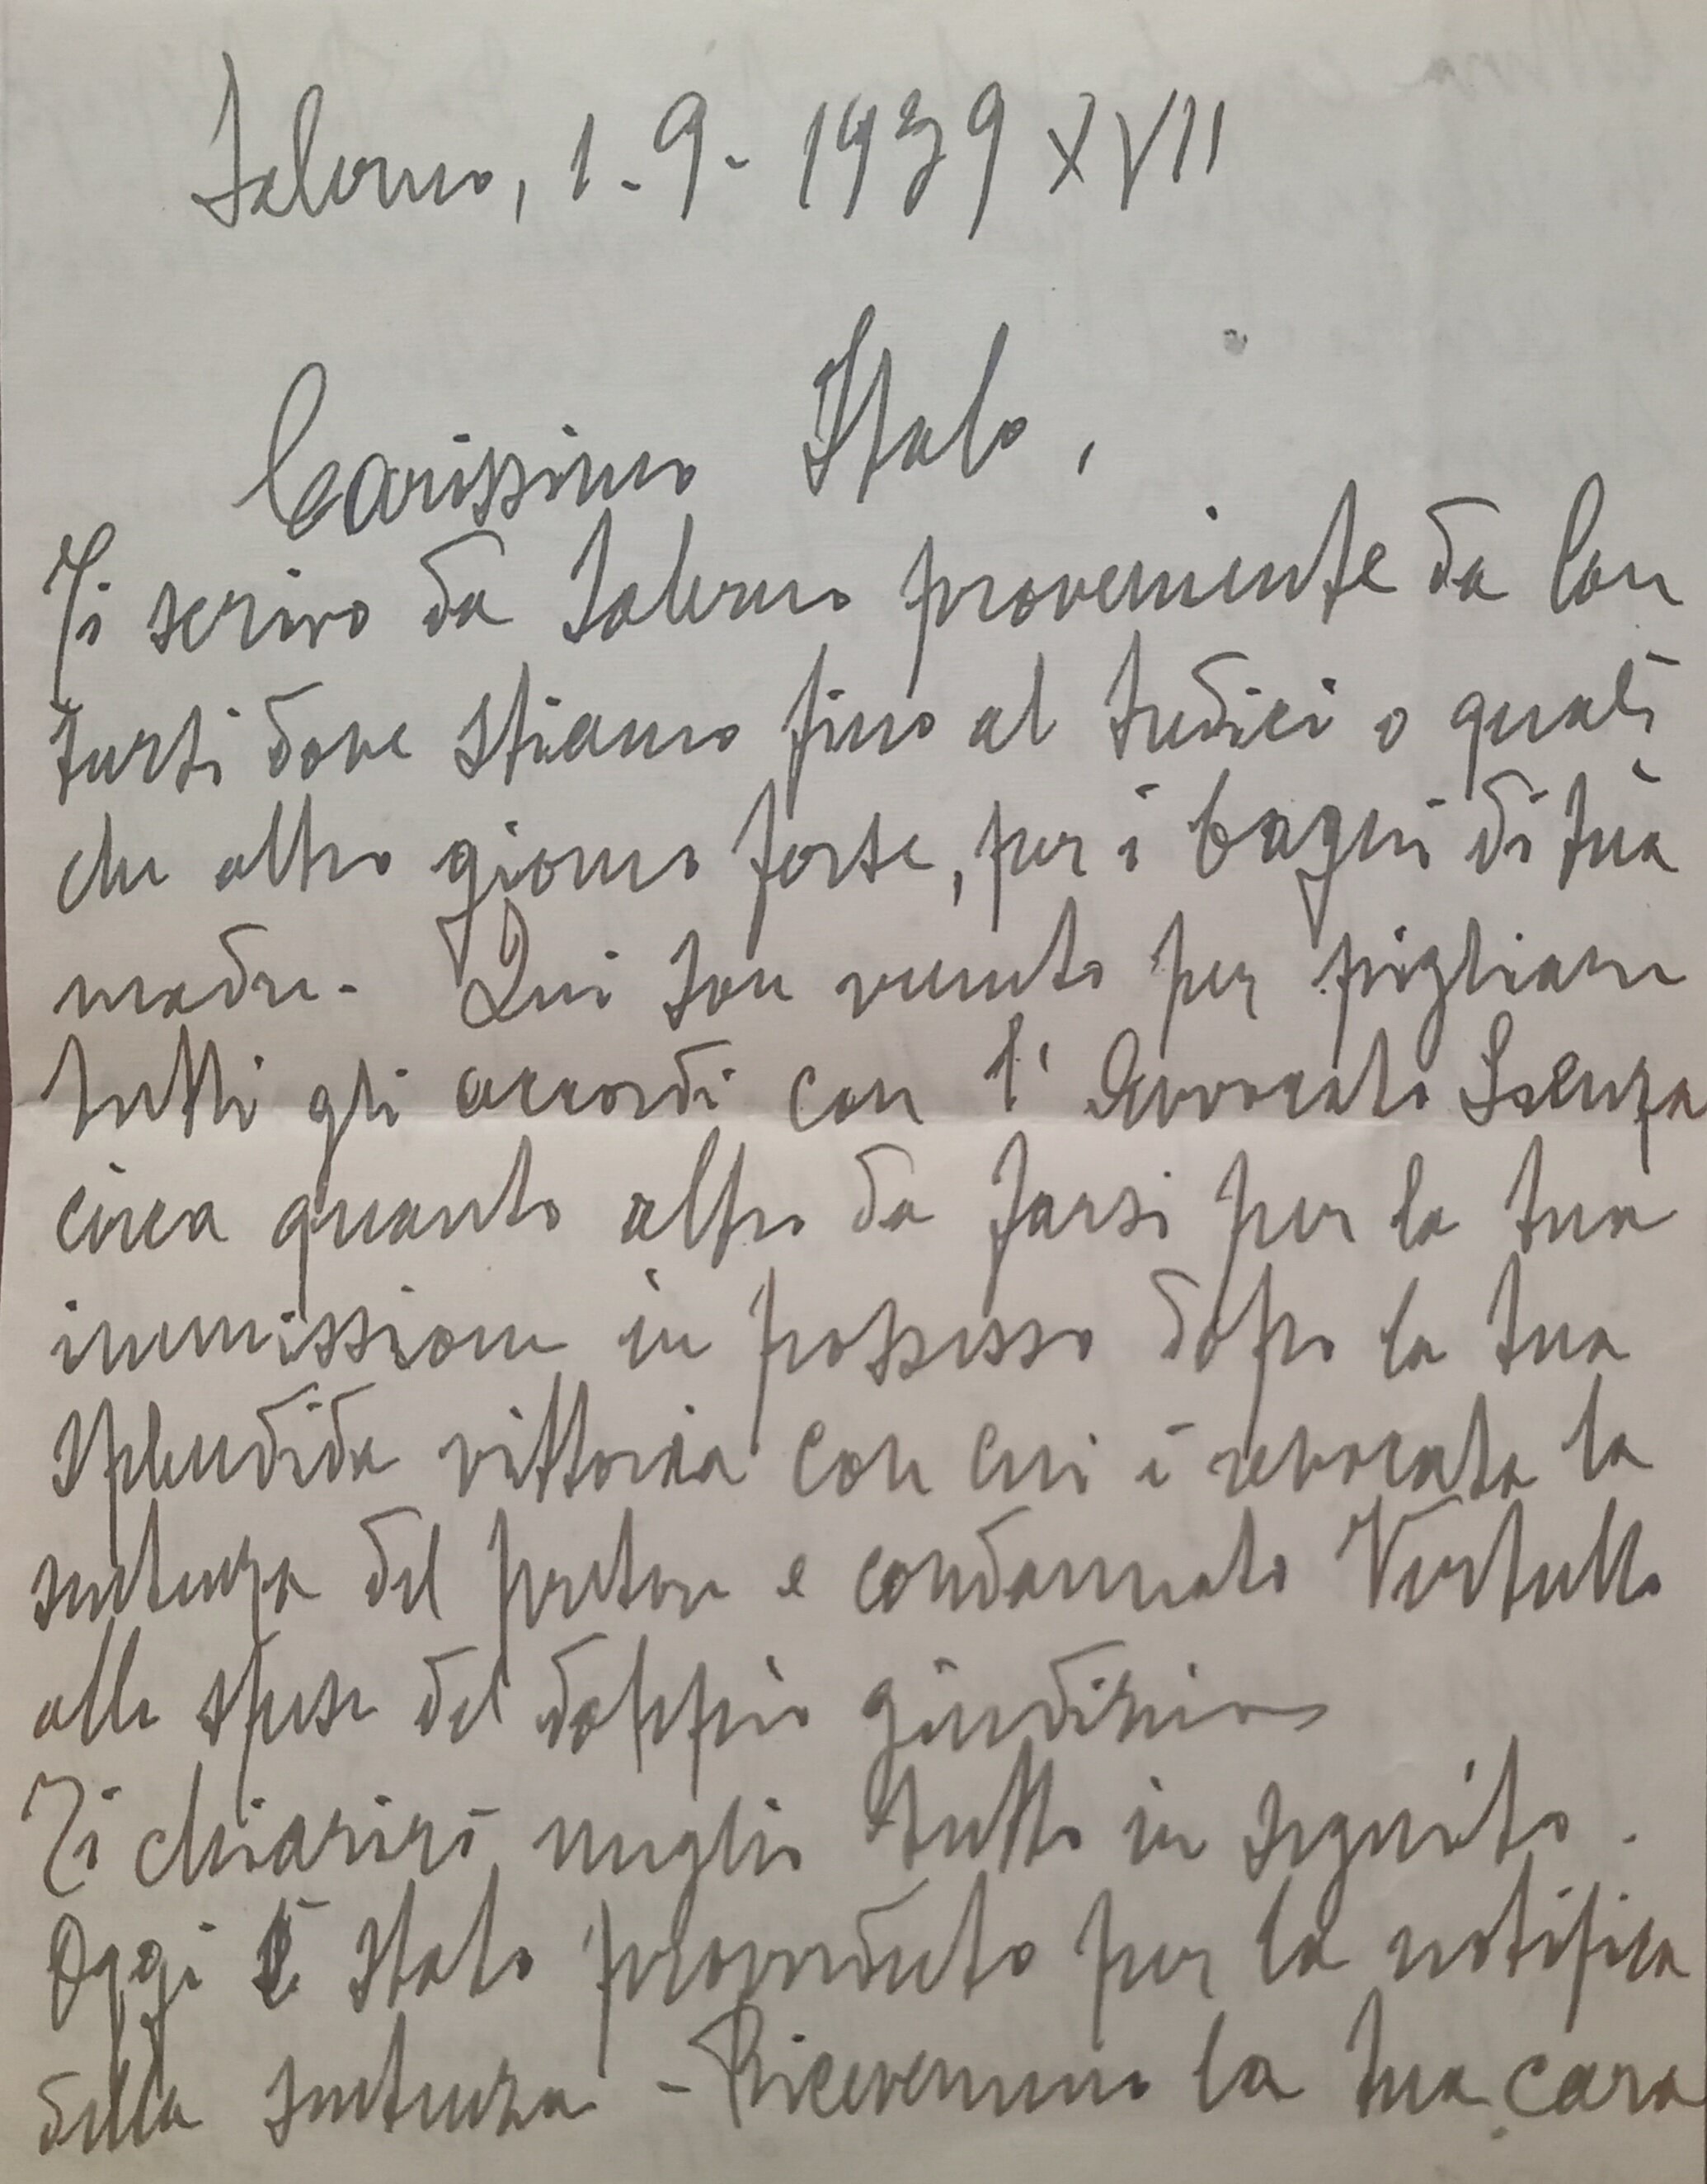 Salerno, 1-9-1939 XVII
Carissimo Italo,
Ti scrivo da Salerno proveniente da Con
tursi dove stiamo fino al tredici o qual
che altro giorno forse, per i bagni di tua
madre. Qui son venuto per pigliare
tutti gli accordi con l'Avvocato
circa quanto altro da farsi per la tua
immissione in possesso dopo la tua
splendida vittoria con cui è revocata la
sentenza del pretore e condannato Vertullo
alle spese del doppio giudizio
Ti chiarirò meglio tutto in seguito.
Oggi è stato provveduto per la notifica
della sentenza - Ricevemmo la tua cara